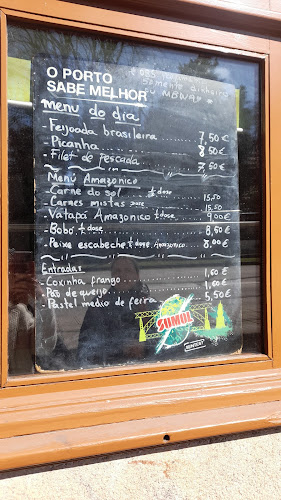 O PORTO
SABE MELHOR
* OBS
somente dinheiro
ou MBWAY *
menu do dia
- Feijoada brasileira ........... 7,50€
- Picanha ........... 8,50€
- Filet de Pescada ........... 7,50€
Menú Amazonico
- Carne do sol ½ dose ........ 15,50
- Carnes mistas ........ 15,50
- Vatapá Amazonico ½ dose ..... 9,00€
- Bobó ½ dose ........... 8,50€
- Peixe escabeche ½ dose Amazónico ..... 8,00€
Entradas
- Coxinha frango ........... 1,60€
- Pão de queijo ........... 1,60€
- Pastel medio de feira ........ 5,50€
SUMOL